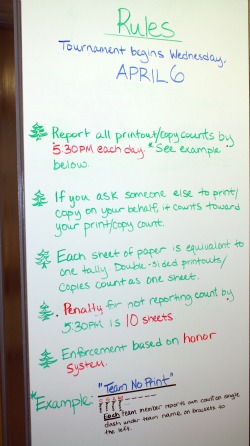 Rules
Tournament begins Wednesday,
APRIL 6
Report all printout/copy counts by
5:30PM each day. *See example
below.
If you ask someone else to print/
copy on your behalf, it counts toward
your print/copy count.
Each sheet of paper is equivalent to
one tally. Double-sided printouts/
copies count as one sheet.
Penalty for not reporting count by
5:30PM is 10 sheets
Enforcement based on honor
system.
"Team No Print"
*Example:
Each team member reports own count on single
dash under team name, on brackets to
the left.